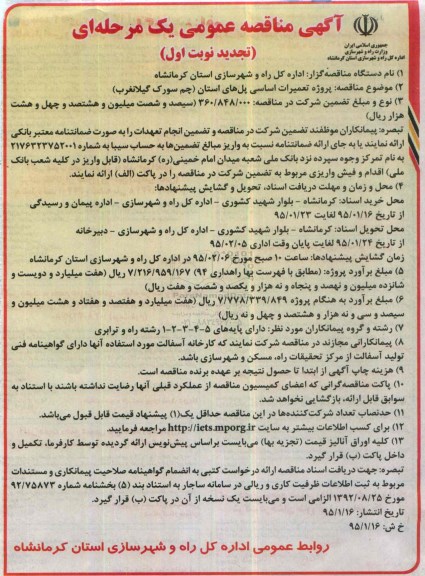 آگهی مناقصه عمومی یک مرحله‌ای
(تجدید نوبت اول)
جمهوری اسلامی ایران
وزارت راه و شهرسازی
اداره کل راه و شهرسازی استان کرمانشاه
۱) نام دستگاه مناقصه‌گزار: اداره کل راه و شهرسازی استان کرمانشاه
۲) موضوع مناقصه: پروژه تعمیرات اساسی پل‌های استان (چم سورک گیلانغرب)
۳) نوع و مبلغ تضمین شرکت در مناقصه: ۳۶۰/۸۴۸/۰۰۰ (سیصد و شصت میلیون و هشتصد و چهل و هشت
هزار ریال)
تبصره: پیمانکاران موظفند تضمین شرکت در مناقصه و تضمین انجام تعهدات را به صورت ضمانتنامه معتبر بانکی
ارائه نمایند یا به جای ارائه ضمانتنامه نسبت به واریز مبالغ تضمین‌ها به حساب سیبا به شماره ۲۱۷۶۳۲۳۷۵۲۰۰۱
به نام تمرکز وجوه سپرده نزد بانک ملی شعبه میدان امام خمینی(ره) کرمانشاه (قابل واریز در کلیه شعب بانک
ملی) اقدام و فیش واریزی مربوط به تضمین شرکت در مناقصه را در پاکت (الف) ارائه نمایند.
۴) محل و زمان و مهلت دریافت اسناد، تحویل و گشایش پیشنهادها:
محل خرید اسناد: کرمانشاه - بلوار شهید کشوری - اداره کل راه و شهرسازی - اداره پیمان و رسیدگی
از تاریخ ۹۵/۰۱/۱۶ لغایت ۹۵/۰۱/۲۳
محل تحویل اسناد: کرمانشاه - بلوار شهید کشوری - اداره کل راه و شهرسازی - دبیرخانه
از تاریخ ۹۵/۰۱/۲۴ لغایت پایان وقت اداری ۹۵/۰۲/۰۵
زمان گشایش پیشنهادها: ساعت ۱۰ صبح مورخ ۹۵/۰۲/۰۶ در اداره کل راه و شهرسازی استان کرمانشاه
۵) مبلغ برآورد پروژه: (مطابق با فهرست بها راهداری ۹۴) ۷/۲۱۶/۹۵۹/۱۶۷ ریال (هفت میلیارد و دویست و
شانزده میلیون و نهصد و پنجاه و نه هزار و یکصد و شصت و هفت ریال)
۶) مبلغ برآورد به هنگام پروژه ۷/۷۷۸/۳۳۹/۸۴۹ ریال (هفت میلیارد و هفتصد و هفتاد و هشت میلیون و
سیصد و سی و نه هزار و هشتصد و چهل و نه ریال)
۷) رشته و گروه پیمانکاران مورد نظر: دارای پایه‌های ۵-۴-۳-۲-۱ رشته راه و ترابری
۸) پیمانکارانی مجازند در مناقصه شرکت نمایند که کارخانه آسفالت مورد استفاده آنها دارای گواهینامه فنی
تولید آسفالت از مرکز تحقیقات راه، مسکن و شهرسازی باشد.
۹) هزینه چاپ آگهی از ابتدا تا حصول نتیجه بر عهده برنده مناقصه است.
۱۰) پاکت مناقصه‌گرانی که اعضای کمیسیون مناقصه از عملکرد قبلی آنها رضایت نداشته باشند با استناد به
سوابق قابل ارائه، بازگشایی نخواهد شد.
۱۱) حدنصاب تعداد شرکت‌کننده‌ها در این مناقصه حداقل یک(۱) پیشنهاد قیمت قابل قبول می‌باشد.
۱۲) برای کسب اطلاعات بیشتر به سایت http://iets.mporg.ir مراجعه فرمایید.
۱۳) کلیه اوراق آنالیز قیمت (تجزیه بها) می‌بایست براساس پیش‌نویس ارائه گردیده توسط کارفرما، تکمیل و
داخل پاکت (ب) قرار گیرد.
تبصره: جهت دریافت اسناد مناقصه ارائه درخواست کتبی به انضمام گواهینامه صلاحیت پیمانکاری و مستندات
مربوط به ثبت اطلاعات ظرفیت کاری و ریالی در سامانه ساجار به استناد بند (۵) بخشنامه شماره ۹۲/۷۵۸۷۳
مورخ ۱۳۹۲/۰۸/۲۵ الزامی است و می‌بایست یک نسخه از آن در پاکت (ب) قرار گیرد.
تاریخ انتشار: ۹۵/۱/۱۶
خ ش: ۹۵/۱/۱۶
روابط عمومی اداره کل راه و شهرسازی استان کرمانشاه